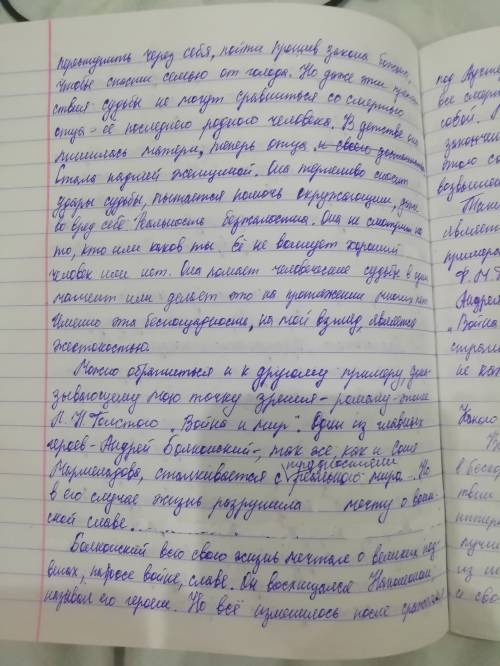 переступить через себя, пойти против закона божьего,
чтобы спасти семью от голода. Но даже эти
ствия судьбы не могут сравниться со смертью
отца - её последнего родного человека. В детстве она
лишилась матери, теперь отца и своего достоинства
Стала падшей женщиной. Она терпеливо сносит
удары судьбы, пытается помочь окружающим, даже
во вред себе. Реальность безжалостна. Она не смотрит на
то, кто или каков ты. Её не волнует хороший
человек или нет. Она ломает человеческие судьбы в один
момент или делает это на протяжении многих лет.
Именно эта беспощадность, на мой взгляд, является
жестокостью.
Можно обратиться и к другому примеру, дока-
зывающему мою точку зрения - роману-эпопее
Л. Н. Толстого „Война и мир". Один из главных
героев - Андрей Болконский -, так же, как и Соня
Мармеладова, сталкивается с реального мира. Но
в его случае жизнь разрушила мечту о воин-
ской славе.
Болконский всю свою жизнь мечтал о великих под-
вигах, войне, славе. Он восхищался Наполеоном,
называл его героем. Но всё изменилось после сражения
под Аусте
все смерт
собой.
закончи
этого со
возвыше
Таки
является
пример
Ф. М. Д
Андрея
„Война
страни
не ка
Какого
В
в бесед
ствии
интере
лучи
из
и сво